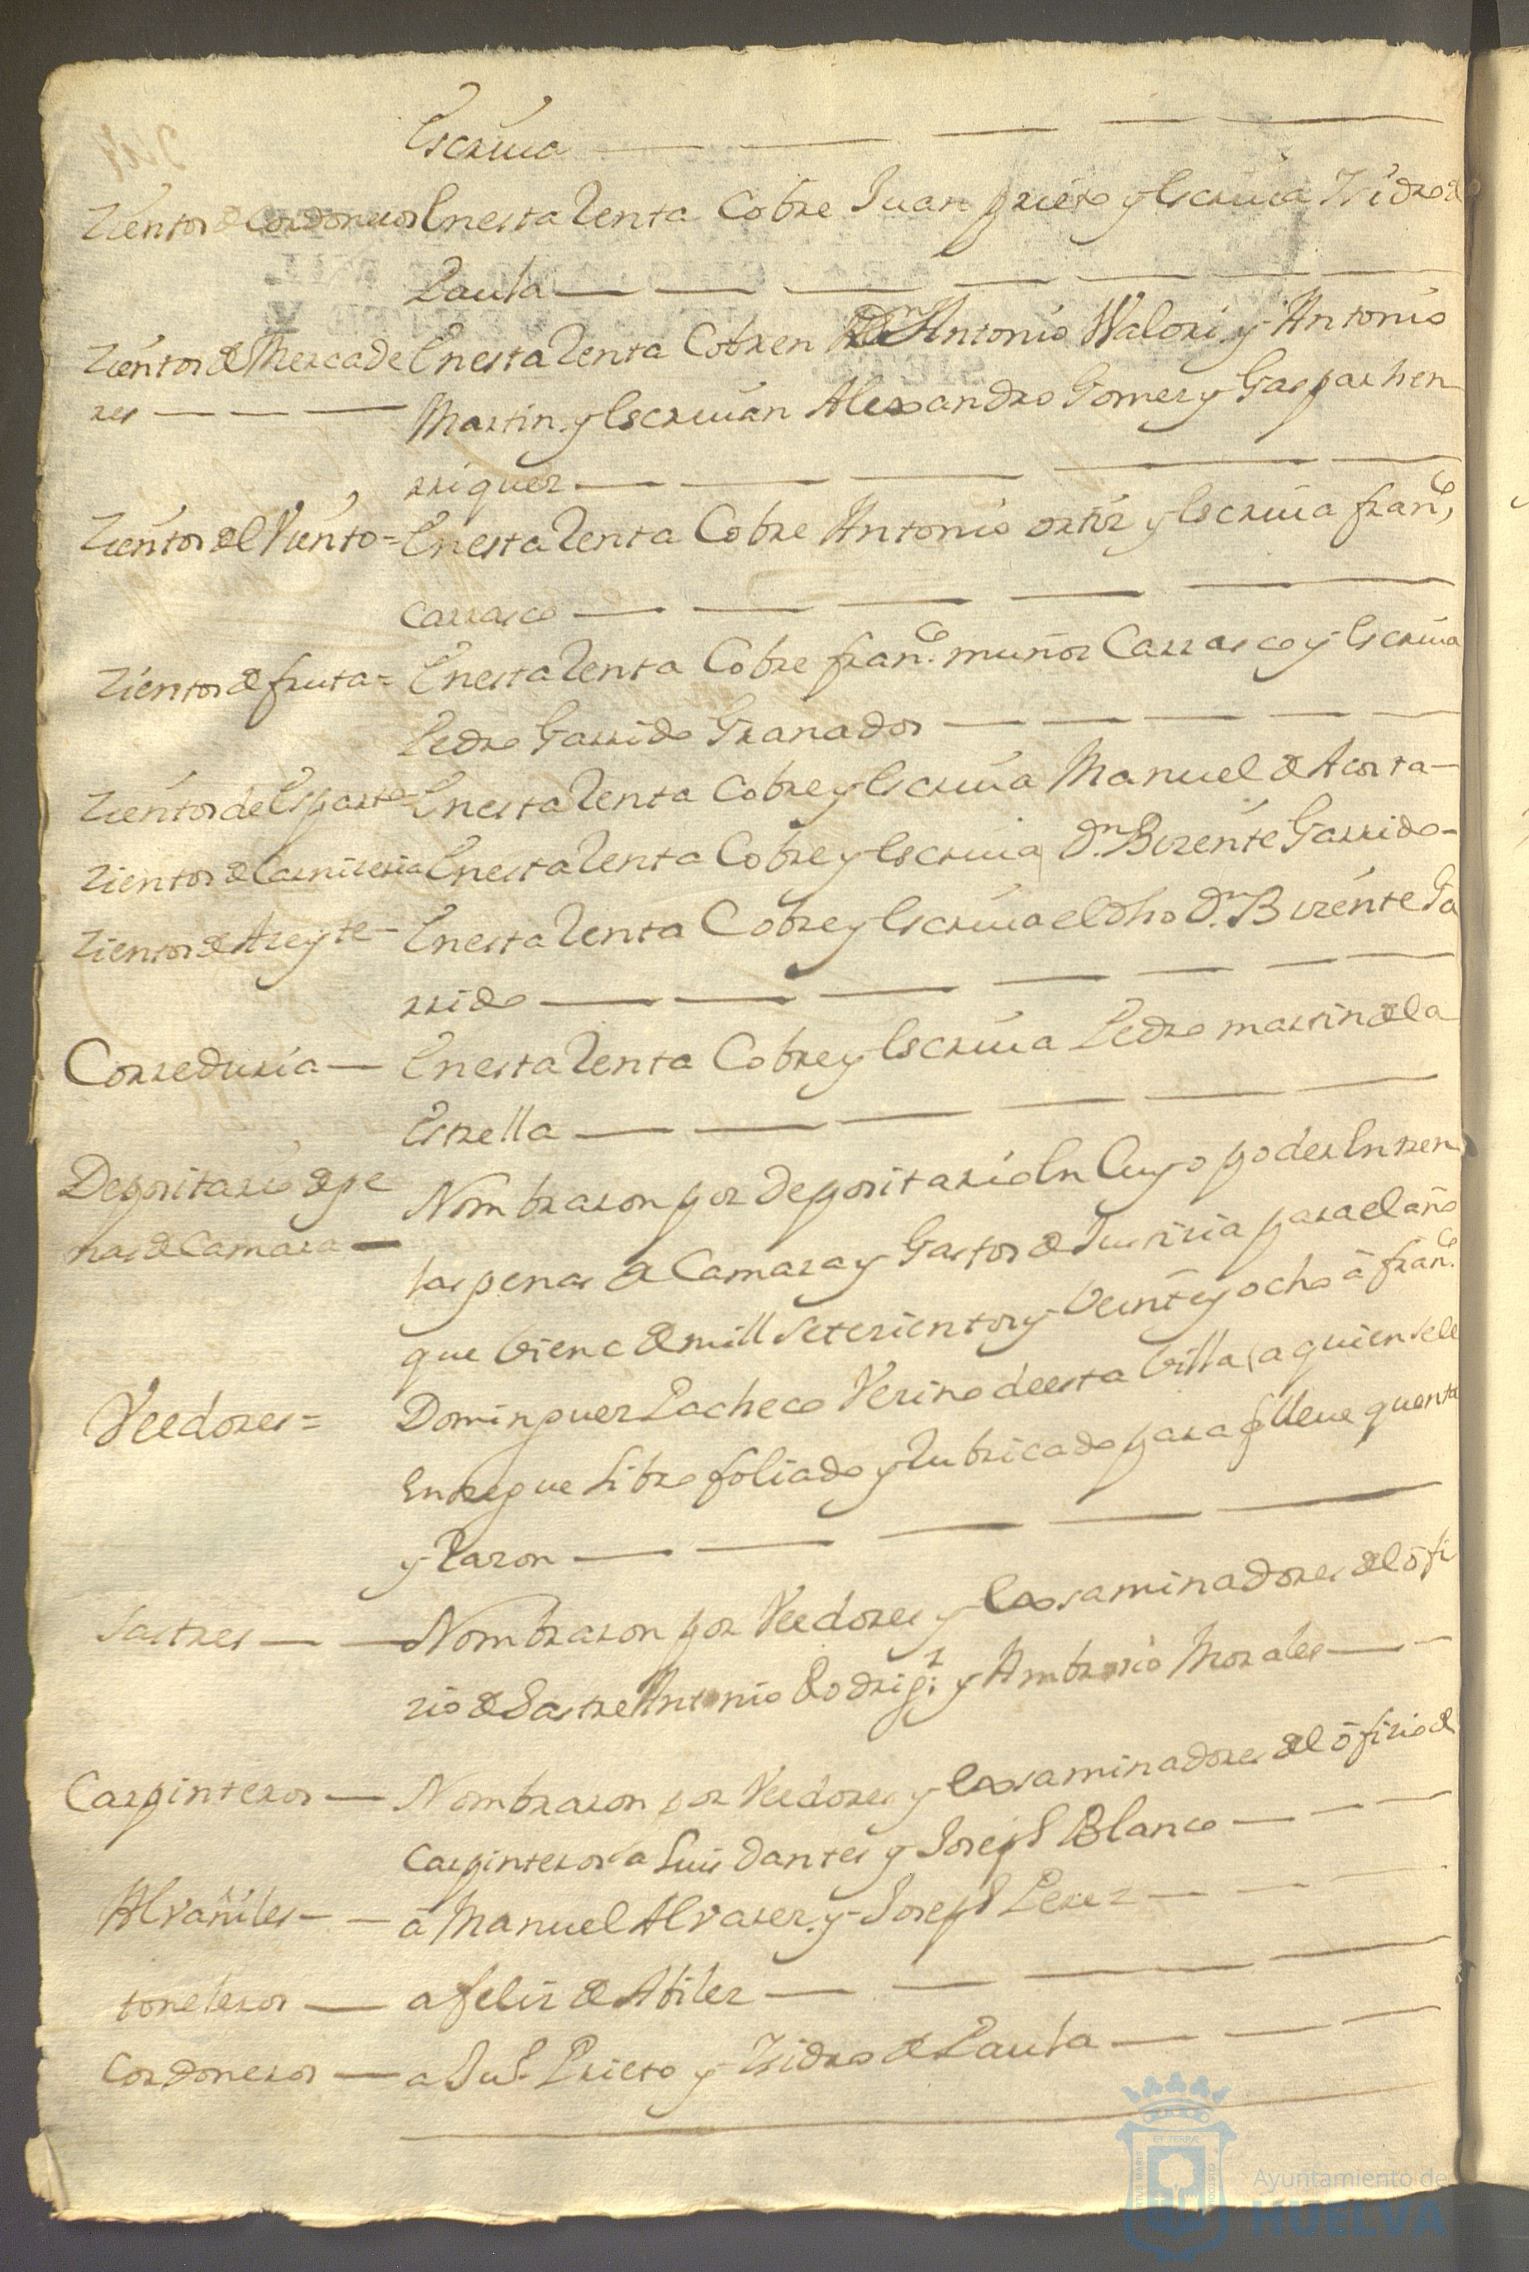 Escriua
Zientos de Cordoneros Enesta Renta Cobre Juan prieto y Escriua Ysidro de
Paula
Zientos de Mercade Enesta Renta Cobren Dn Antonio Walori y Antonio
res Martin y Escriuan Alexandro Gomez y Gaspar hen
rriquez
Zientos del Viento = Enesta Renta Cobre Antonio ortiz y Escriua franco
carrasco
Zientos de fruta = Enesta Renta Cobre franco muñoz Carrasco y Escriua
Pedro Garrido Granados
Zientos de Esparto Enesta Renta Cobre y Escriua Manuel de Acosta
Zientos de Carniseria Enesta Renta Cobre y Escriuia Dn Bizente Garrido
Zientos de Azeyte Enesta Renta Cobre y Escriua el dho Dn Bizente Ga
rrido
Correduria Enesta Renta Cobre y Escriua Pedro martin de la
Estrella
Depositario de pe Nombraron por depositario En Cuyo poder Entren
nas de Camara las penas de Camara y Gastos de Justizia para el año
que biene de mill setezientos y beinte y ocho â franco
Veedores = Dominguez Pacheco Vezino de esta billa, a quien se le
Entregue Libro foliado y Rubricado para q lleue quenta
y Razon
Sastres Nombraron por Veedores y Exsaminadores del ofi
zio de Sastre Antonio Rodrigz y Ambrosio Morales
Carpinteros Nombraron por Veedores y Exsaminadores del ofizio de
Carpinteros a Luis dantes y Joseph Blanco
Alvañiles â Manuel Alvarez y Joseph Perez
toneleros a feliz de Abilez
Cordoneros a Ju Prieto y Ysidro de Paula
Ayuntamiento de
HUELVA